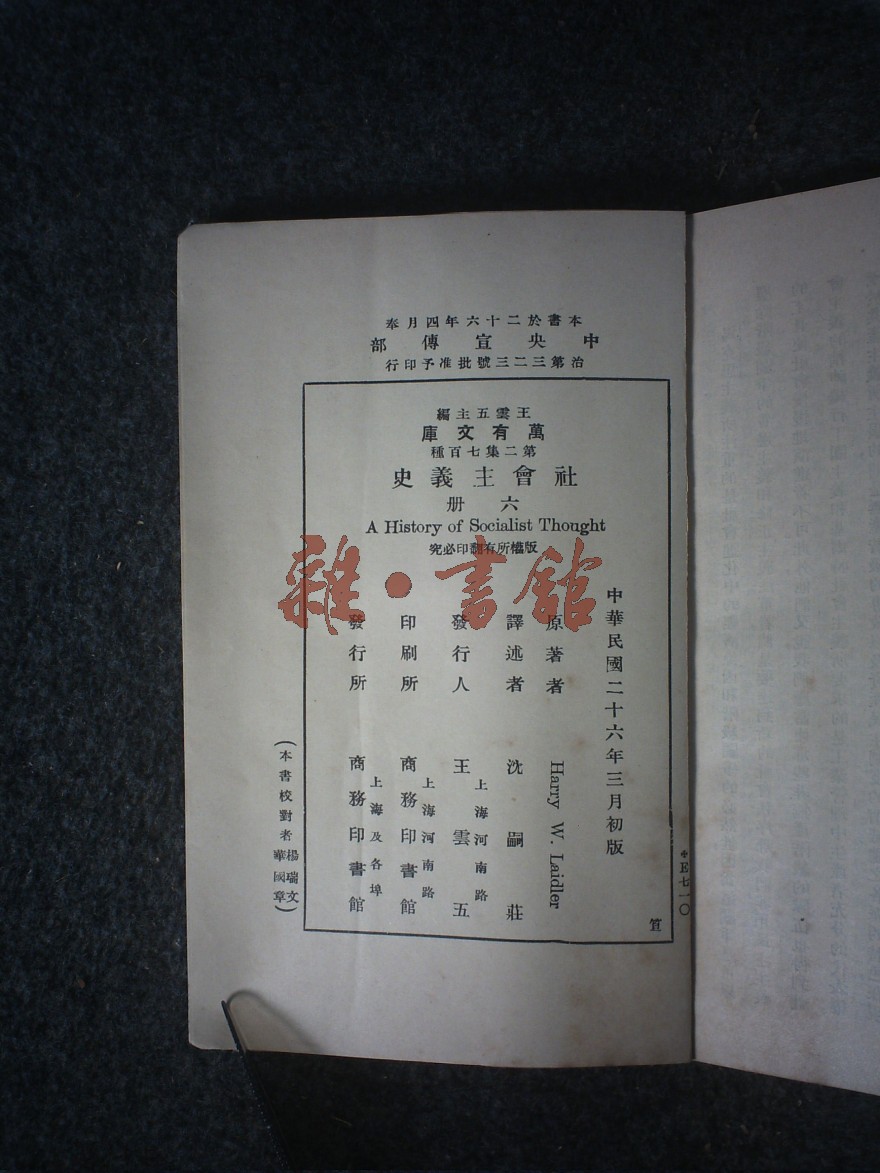 本書於二十六年四月奉
中央宣傳部
治第三二三號批准予印行
王雲五主編
萬有文庫
第二集七百種
社會主義史
六册
A History of Socialist Thought
版權所有翻印必究
中華民國二十六年三月初版
原著者 Harry W. Laidler
譯述者 沈嗣莊
發行人 王雲五
上海河南路
印刷所 商務印書館
上海河南路
發行所 商務印書館
上海及各埠
(本書校對者楊瑞文
華國章)
E七一〇
雜·書館